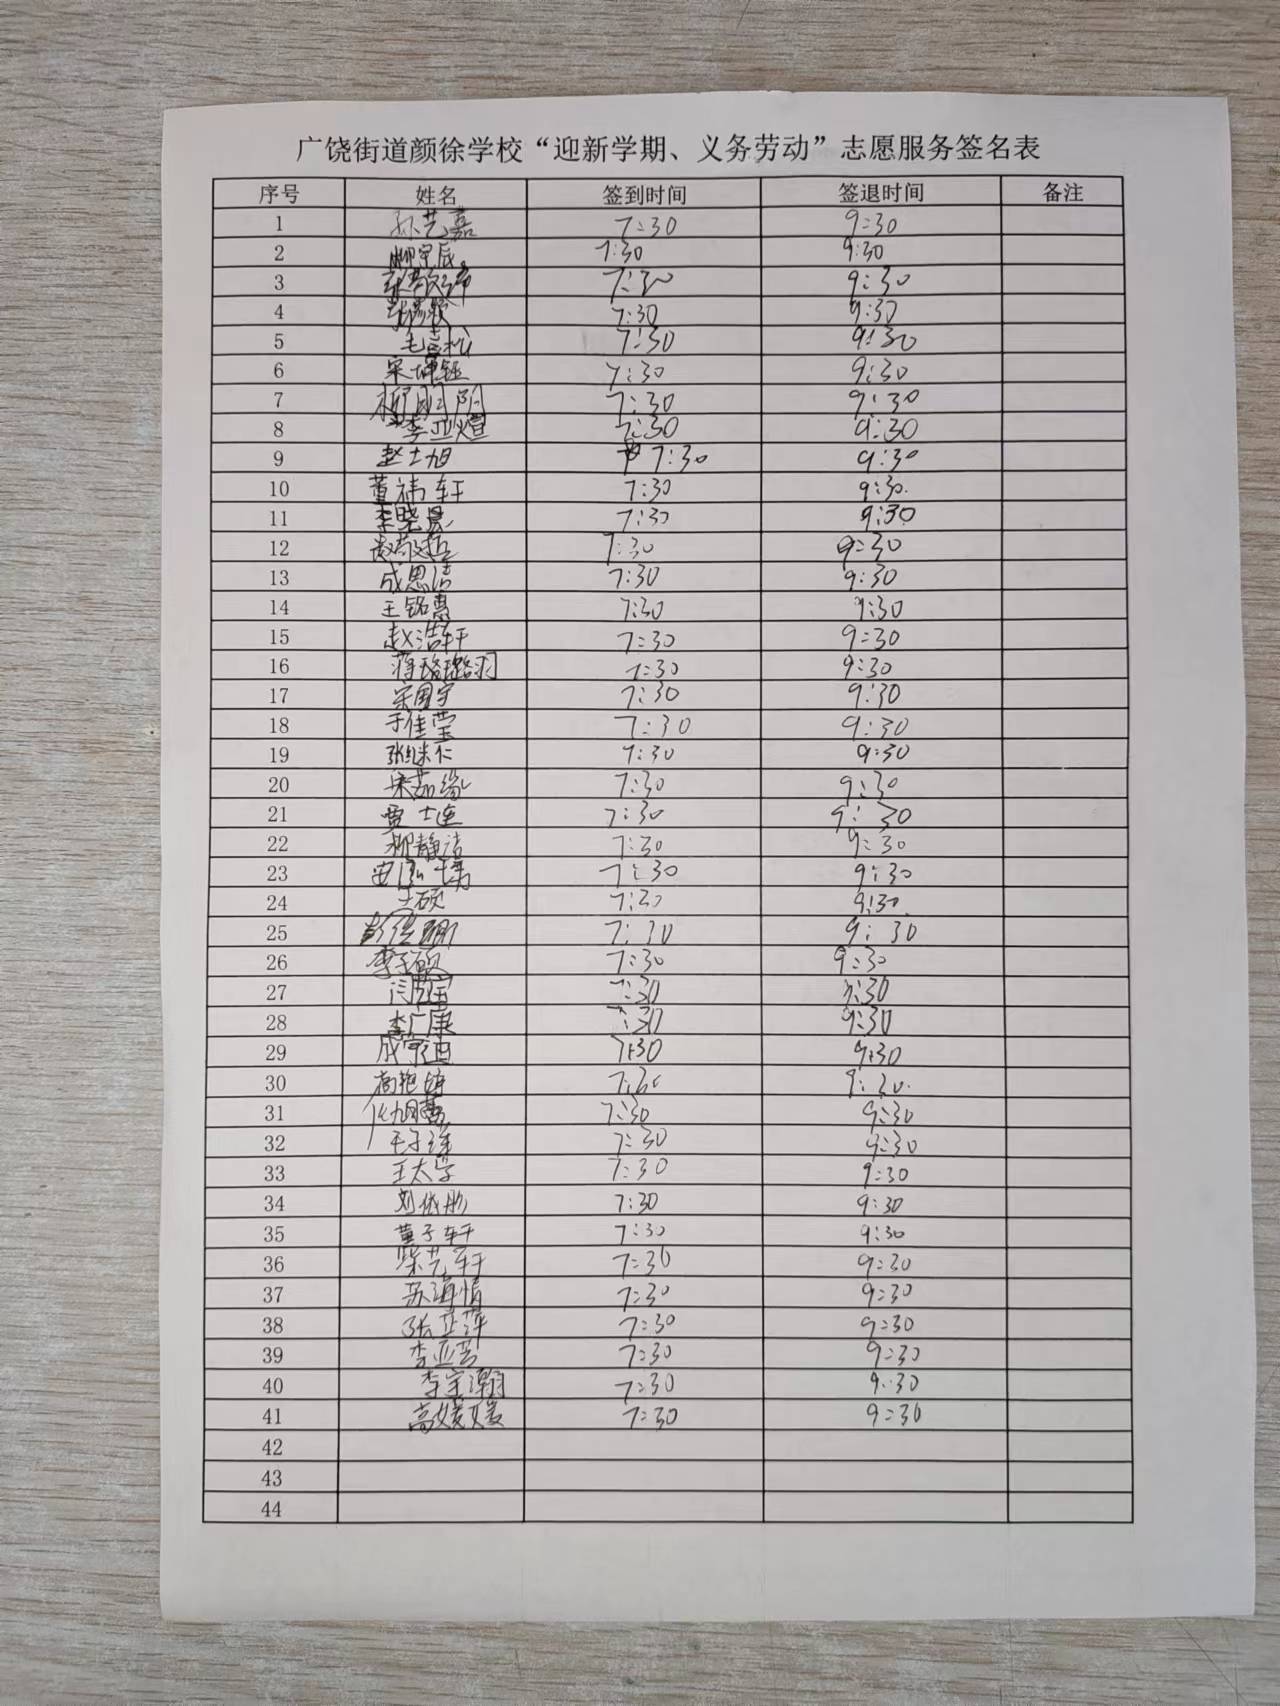 广饶街道颜徐学校“迎新学期、义务劳动”志愿服务签名表
序号 姓名 签到时间 签退时间 备注
1 孙艺嘉 7:30 9:30
2 7:30 9:30
3 7:30 9:30
4 7:30 9:30
5 毛志松 7:30 9:30
6 宋坤钰 7:30 9:30
7 柳明阳 7:30 9:30
8 李亚煊 7:30 9:30
9 赵士旭 7:30 9:30
10 董祎轩 7:30 9:30.
11 李晓晨 7:30 9:30
12 7:30 9:30
13 成思洁 7:30 9:30
14 王铭惠 7:30 9:30
15 赵浩轩 7:30 9:30
16 蒋璐璐羽 7:30 9:30
17 宋国宇 7:30 9:30
18 于佳莹 7:30 9:30
19 张继仁 7:30 9:30
20 7:30 9:30
21 贾士连 7:30 9:30
22 柳静洁 7:30 9:30
23 7:30 9:30
24 王硕 7:30 9:30.
25 7:30 9:30
26 李玉硕 7:30 9:30
27 7:30 9:30
28 李广康 7:30 9:30
29 成宇迪 7:30 9:30
30 7:30 9:30.
31 7:30 9:30
32 7:30 9:30
33 王太学 7:30 9:30
34 刘依彤 7:30 9:30
35 董子轩 7:30 9:30
36 柴艺轩 7:30 9:30
37 苏海情 7:30 9:30
38 张亚萍 7:30 9:30
39 李亚芸 7:30 9:30
40 李宝瀚 7:30 9:30
41 高媛媛 7:30 9:30
42
43
44